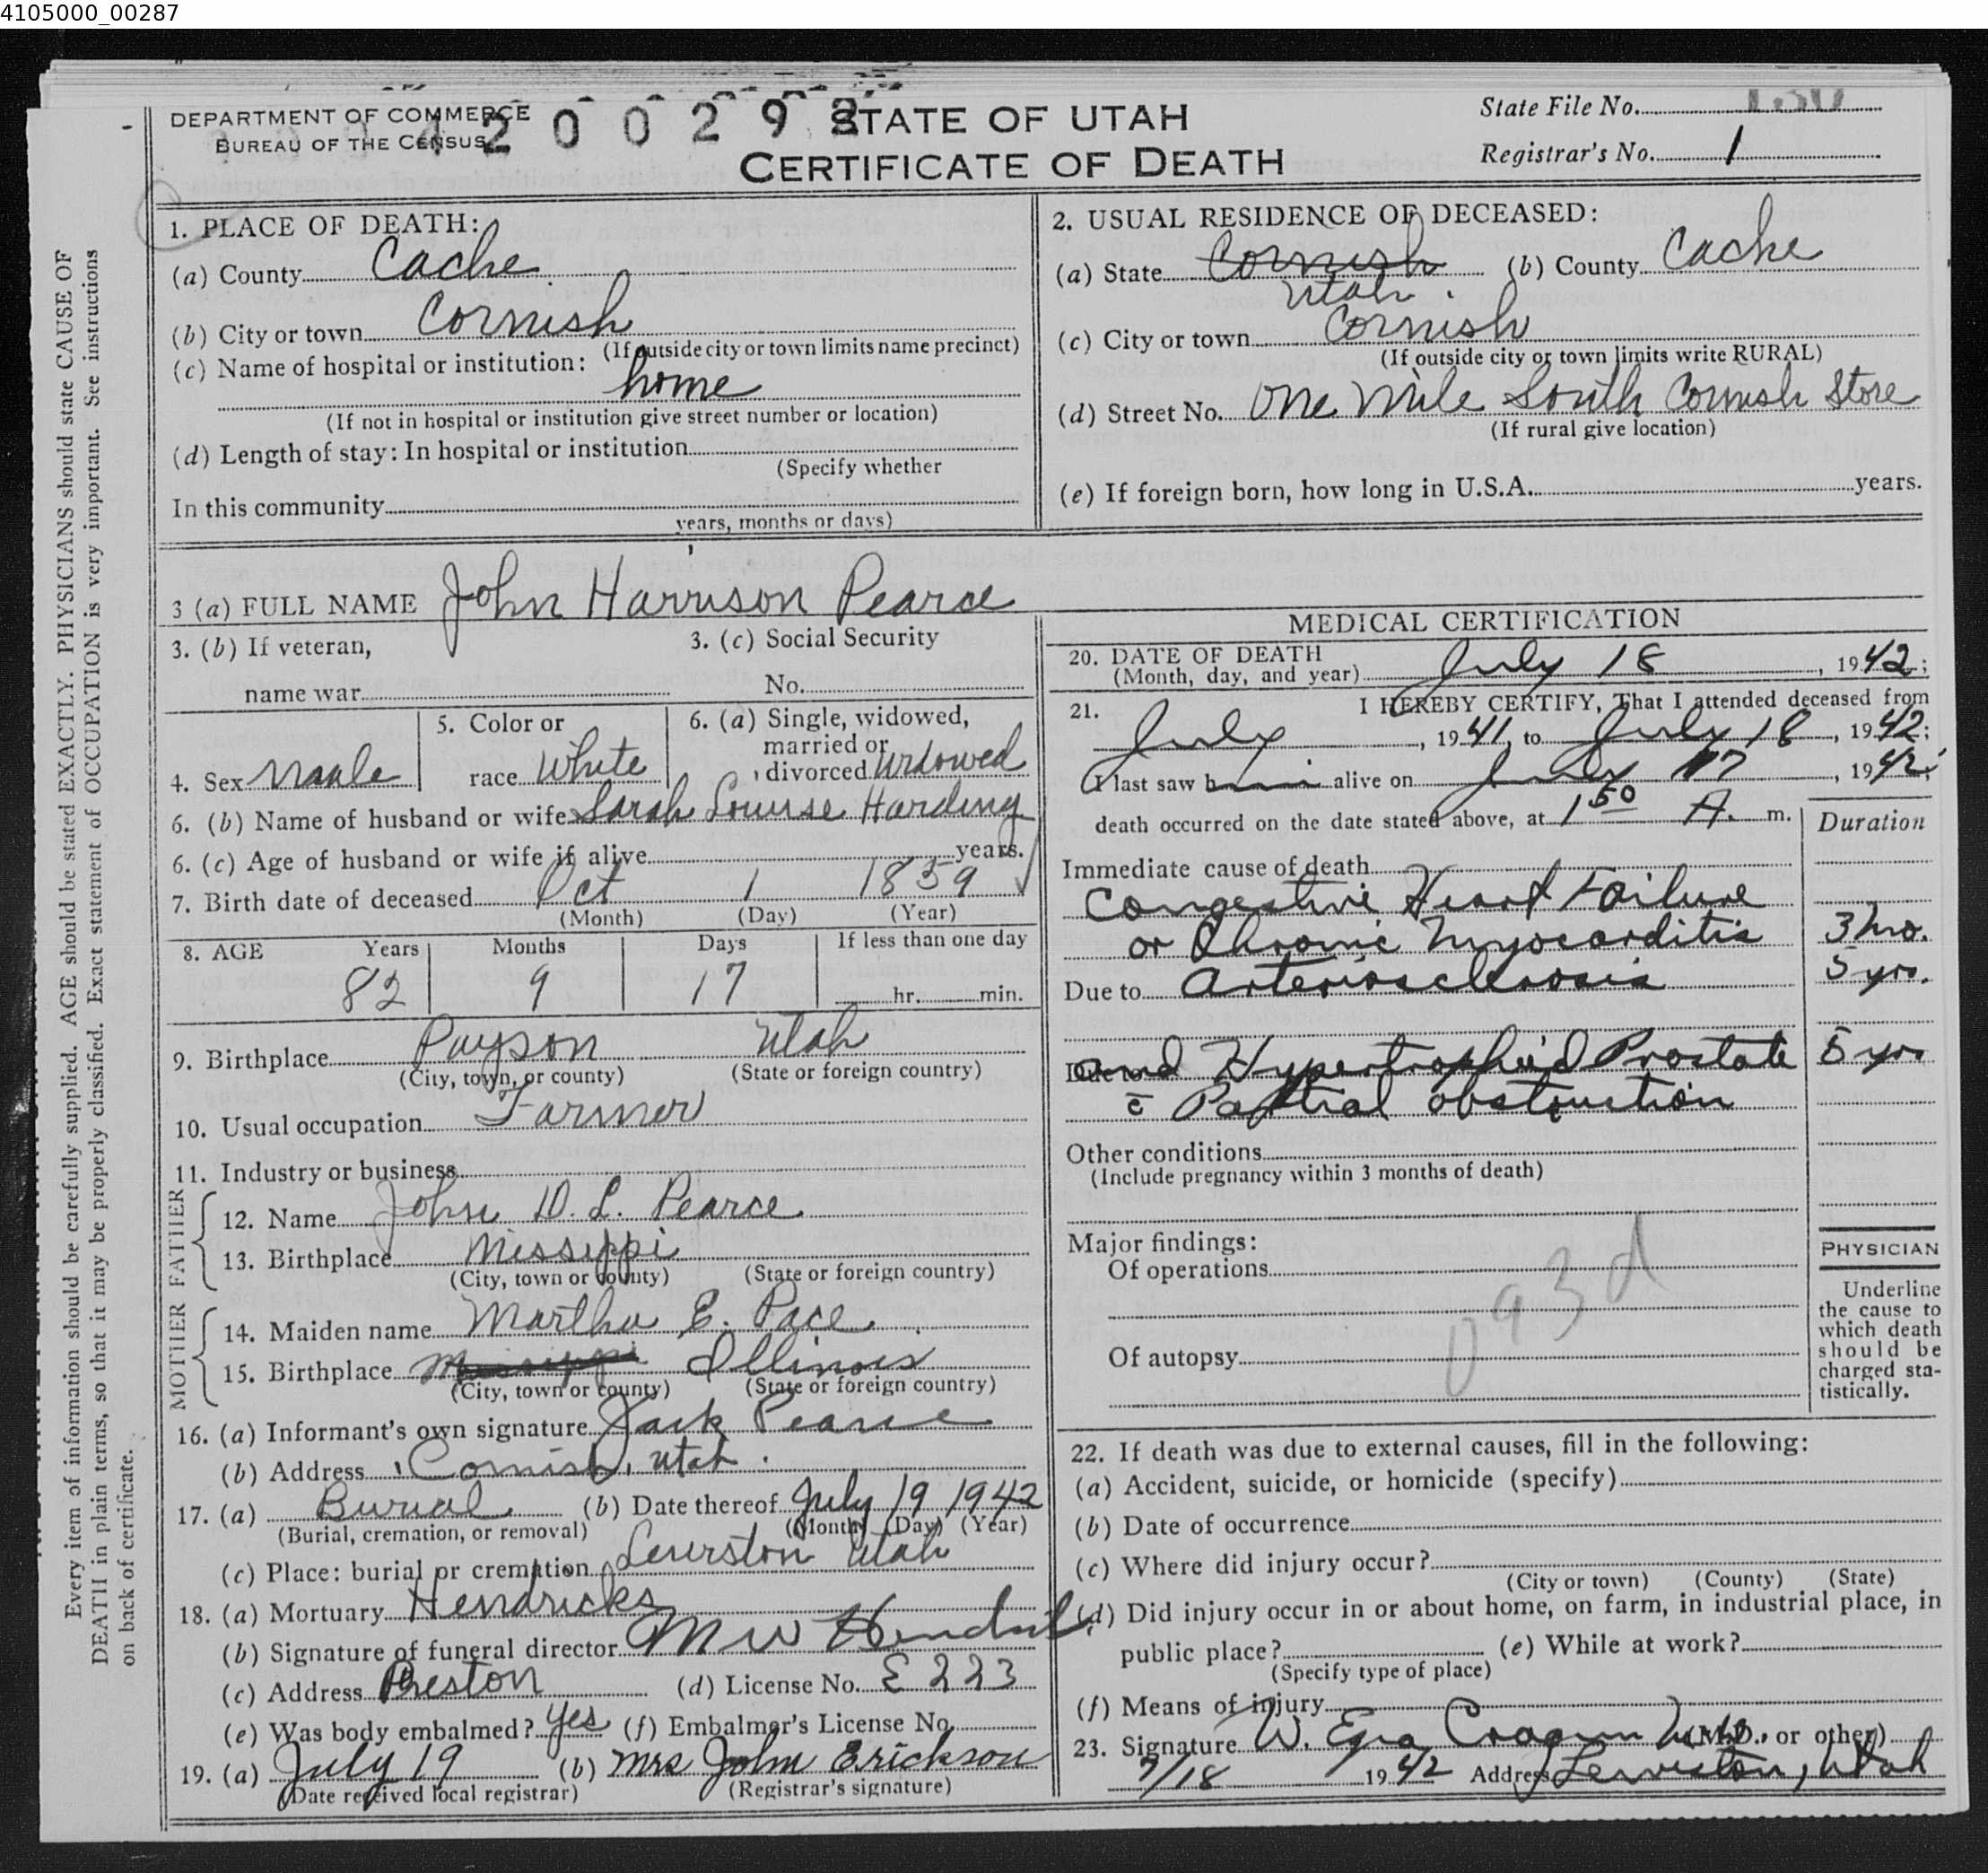 4105000_00287
DEPARTMENT OF COMMERCE
BUREAU OF THE CENSUS
420029
STATE OF UTAH
CERTIFICATE OF DEATH
State File No. 130
Registrar's No. 1
Every item of information should be carefully supplied. AGE should be stated EXACTLY. PHYSICIANS should state CAUSE OF
DEATH in plain terms, so that it may be properly classified. Exact statement of OCCUPATION is very important. See instructions
on back of certificate.
1. PLACE OF DEATH:
(a) County Cache
(b) City or town Cornish
(If outside city or town limits name precinct)
(c) Name of hospital or institution:
home
(If not in hospital or institution give street number or location)
(d) Length of stay: In hospital or institution
(Specify whether
In this community
years, months or days)
2. USUAL RESIDENCE OF DECEASED:
(a) State Cornish (b) County Cache
Utah.
(c) City or town Cornish
(If outside city or town limits write RURAL)
(d) Street No. One Mile South Cornish Store
(If rural give location)
(e) If foreign born, how long in U.S.A. years.
3 (a) FULL NAME John Harrison Pearce
3. (b) If veteran,
name war
3. (c) Social Security
No.
4. Sex Male
5. Color or
race White
6. (a) Single, widowed,
married or
divorced Widowed
6. (b) Name of husband or wife Sarah Lourse Harding
6. (c) Age of husband or wife if alive years.
7. Birth date of deceased Oct 1 1859
(Month) (Day) (Year)
8. AGE Years Months Days If less than one day
82 9 17 hr. min.
9. Birthplace Payson Utah
(City, town, or county) (State or foreign country)
10. Usual occupation Farmer
11. Industry or business
FATHER
12. Name John D. L. Pearce
13. Birthplace Missippi
(City, town or county) (State or foreign country)
MOTHER
14. Maiden name Martha E. Pace
15. Birthplace Missippi Illinois
(City, town or county) (State or foreign country)
16. (a) Informant's own signature Jack Pearce
(b) Address Cornish, Utah.
17. (a) Burial (b) Date thereof July 19 1942
(Burial, cremation, or removal) (Month) (Day) (Year)
(c) Place: burial or cremation Lewiston Utah
18. (a) Mortuary Hendricks
(b) Signature of funeral director M W Hendricks
(c) Address Preston (d) License No. E 223
(e) Was body embalmed? Yes (f) Embalmer's License No.
19. (a) July 19 (b) Mrs John Erickson
(Date received local registrar) (Registrar's signature)
MEDICAL CERTIFICATION
20. DATE OF DEATH
(Month, day, and year) July 18, 1942;
21. I HEREBY CERTIFY, That I attended deceased from
July, 1941, to July 18, 1942;
I last saw him alive on July 17, 1942;
death occurred on the date stated above, at 1 50 A. m.
Duration
Immediate cause of death
Congestive Heart Failure
or Chronic Myocarditis 3 mo.
Due to Arteriosclerosis 5 yrs.
Due to and Hypertrophied Prostate 5 yrs
c̄ Partial obstruction
Other conditions
(Include pregnancy within 3 months of death)
Major findings:
Of operations
Of autopsy
093d
PHYSICIAN
Underline
the cause to
which death
should be
charged sta-
tistically.
22. If death was due to external causes, fill in the following:
(a) Accident, suicide, or homicide (specify)
(b) Date of occurrence
(c) Where did injury occur?
(City or town) (County) (State)
(d) Did injury occur in or about home, on farm, in industrial place, in
public place? (e) While at work?
(Specify type of place)
(f) Means of injury
23. Signature W. Ezra Cragun M.D. (M.D., or other)
7/18 1942 Address Lewiston, Utah